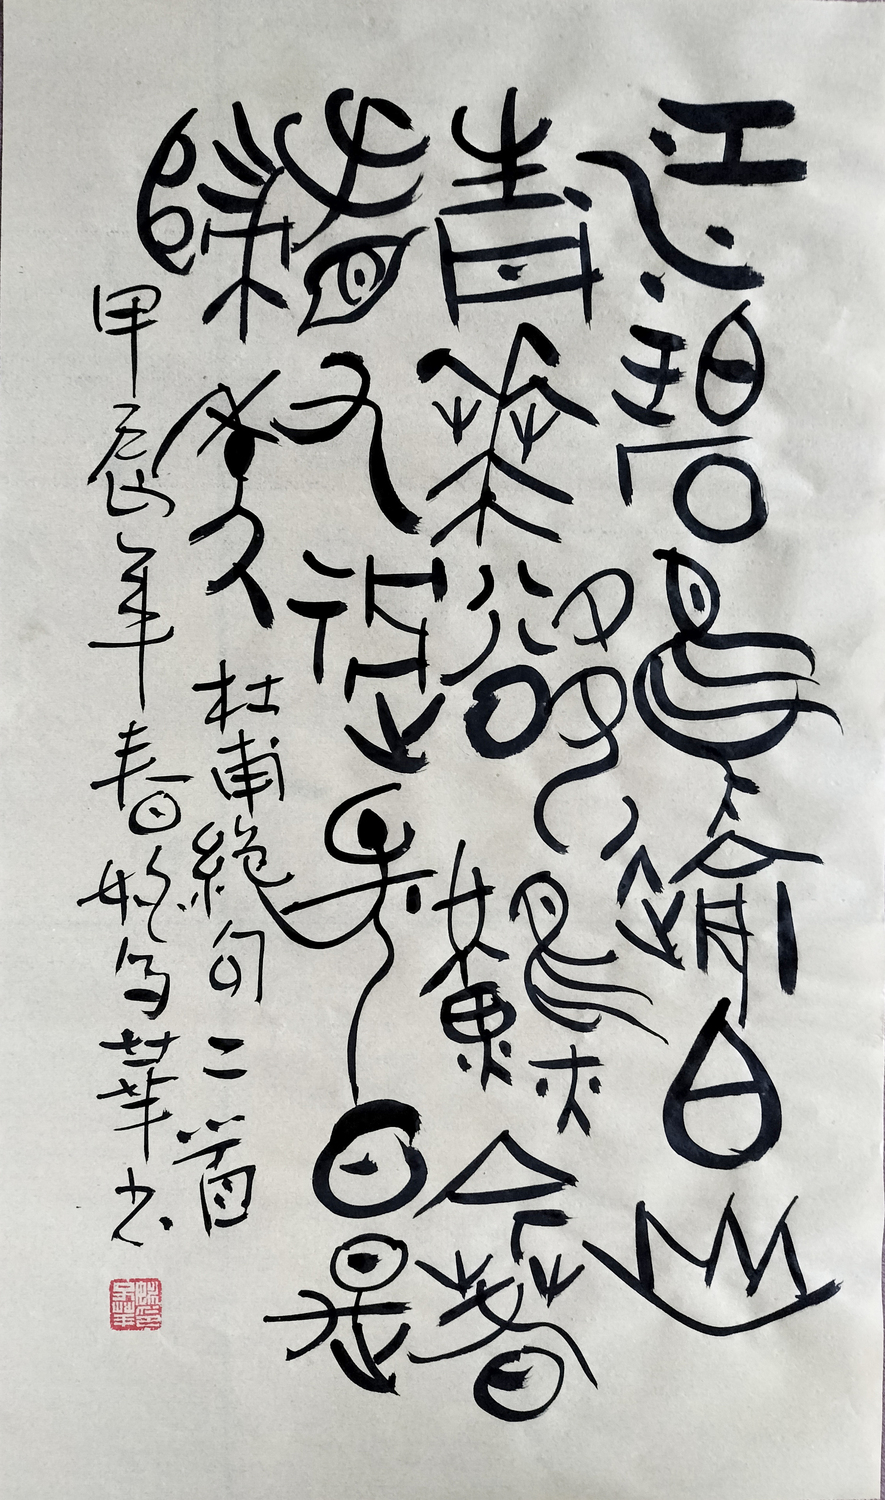 江碧鳥逾白山
青華欲燃今春
看又過何日是
歸年 杜甫絕句二首
甲辰年春姚華书